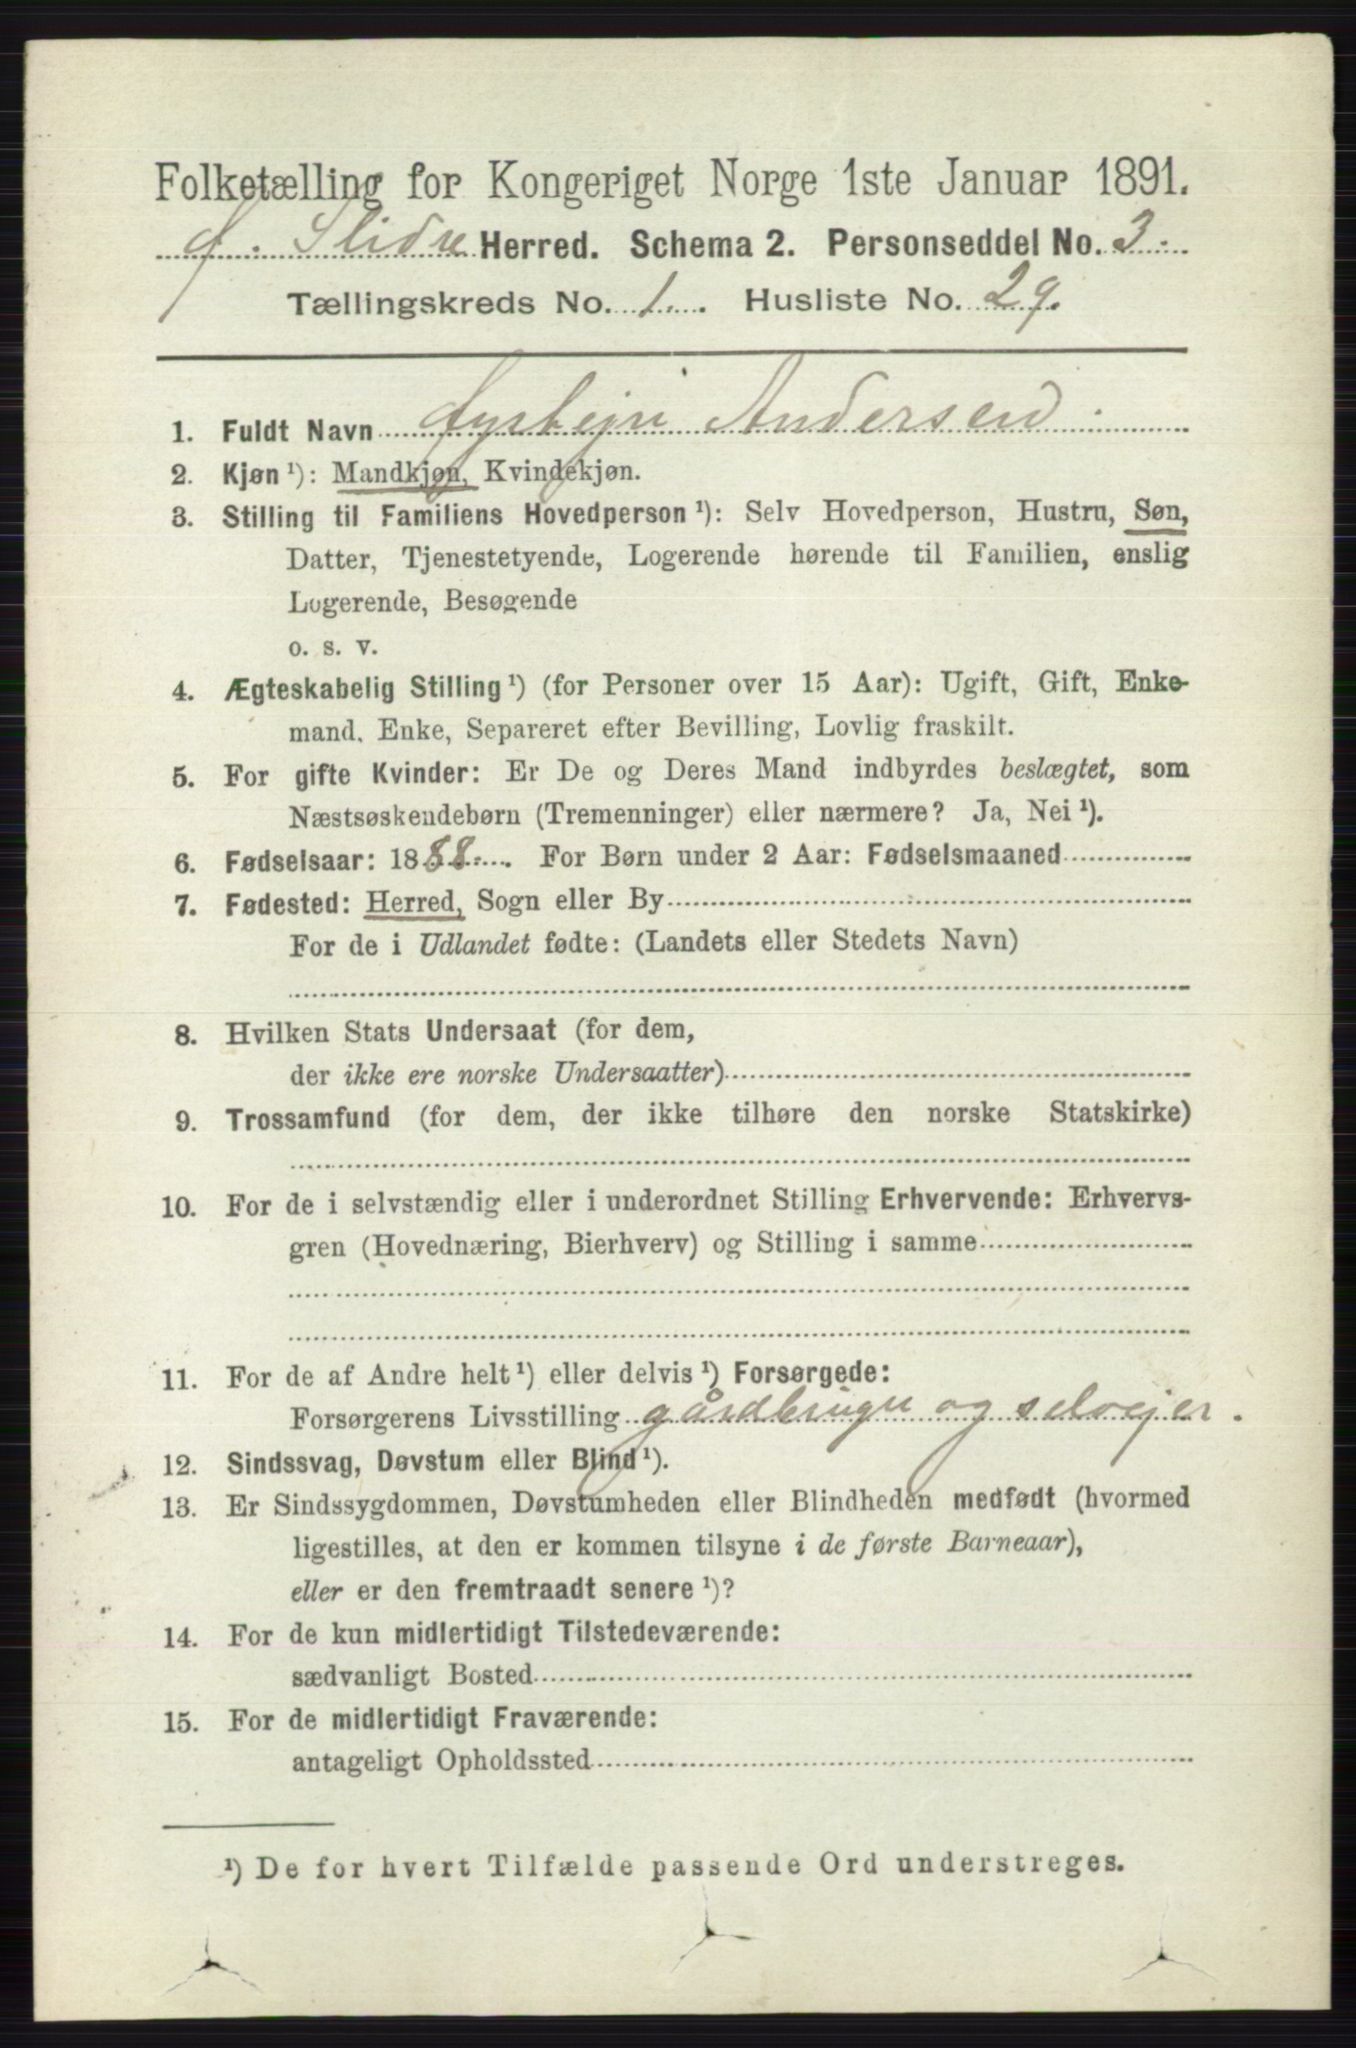 Folketælling for Kongeriget Norge 1ste Januar 1891.
Slidre Herred. Schema 2. Personseddel No. 3.
Tællingskreds No. 1. Husliste No. 29.
1. Fuldt Navn Andersen
2. Kjøn ¹): Mandkjøn, Kvindekjøn.
3. Stilling til Familiens Hovedperson ¹): Selv Hovedperson, Hustru, Søn,
Datter, Tjenestetyende, Logerende hørende til Familien, enslig
Logerende, Besøgende
o. s. v.
4. Ægteskabelig Stilling ¹) (for Personer over 15 Aar): Ugift, Gift, Enke-
mand, Enke, Separeret efter Bevilling, Lovlig fraskilt.
5. For gifte Kvinder: Er De og Deres Mand indbyrdes beslægtet, som
Næstsøskendebørn (Tremenninger) eller nærmere? Ja, Nei ¹).
6. Fødselsaar: 1888. For Børn under 2 Aar: Fødselsmaaned
7. Fødested: Herred, Sogn eller By
For de i Udlandet fødte: (Landets eller Stedets Navn)
8. Hvilken Stats Undersaat (for dem,
der ikke ere norske Undersaatter)
9. Trossamfund (for dem, der ikke tilhøre den norske Statskirke)
10. For de i selvstændig eller i underordnet Stilling Erhvervende: Erhvervs-
gren (Hovednæring, Bierhverv) og Stilling i samme
11. For de af Andre helt ¹) eller delvis ¹) Forsørgede:
Forsørgerens Livsstilling gårdbruger og selvejer.
12. Sindssvag, Døvstum eller Blind ¹).
13. Er Sindssygdommen, Døvstumheden eller Blindheden medfødt (hvormed
ligestilles, at den er kommen tilsyne i de første Barneaar),
eller er den fremtraadt senere ¹)?
14. For de kun midlertidigt Tilstedeværende:
sædvanligt Bosted
15. For de midlertidigt Fraværende:
antageligt Opholdssted
¹) De for hvert Tilfælde passende Ord understreges.